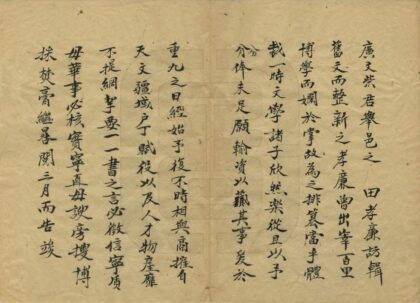 廣文柴君舉邑之　田孝廉訪輯
舊文而整新之孝廉嘗出宰百里
博學而嫻於掌故為之排纂富乎體
裁一時文學諸子欣然樂從且以予
分俸未足願輸資以蕆其事爰於
重九之日經始予復不時相與商搉自
天文疆域戶丁賦役以及人才物產靡
不提綱挈要一一書之言必徵信寧質
毋華事必核實寧直毋諛房搜博
採焚膏繼晷閱三月而告竣